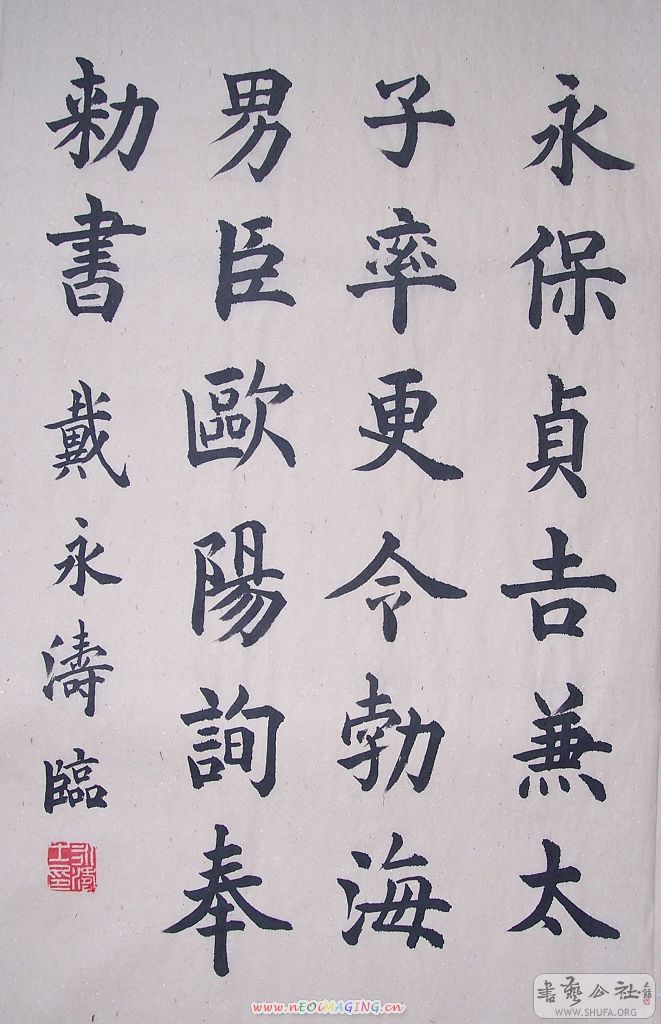 永保貞吉兼太
子率更令勃海
男臣歐陽詢奉
勑書 戴永濤臨
書藝公社
WWW.SHUFA.ORG
www.nEOiMAGING.cn